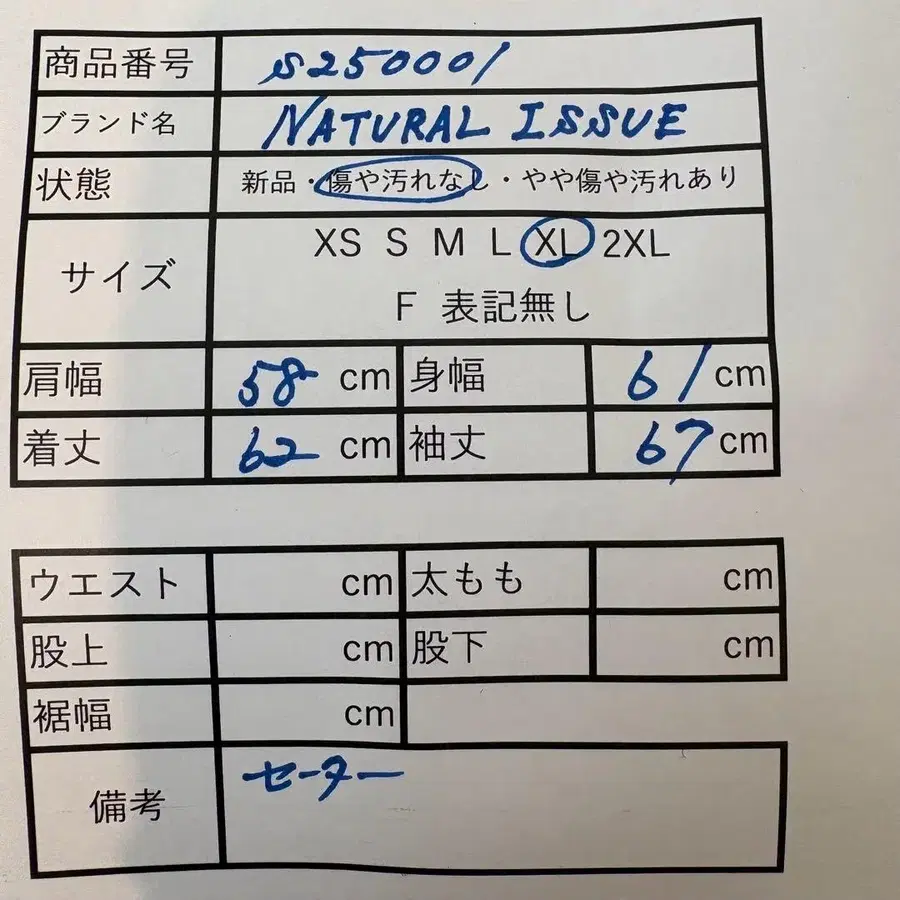 商品番号 S250001
ブランド名 NATURAL ISSUE
状態 新品・傷や汚れなし・やや傷や汚れあり
サイズ XS S M L XL 2XL
F 表記無し
肩幅 58 cm 身幅 61 cm
着丈 62 cm 袖丈 67 cm
ウエスト cm 太もも cm
股上 cm 股下 cm
裾幅 cm
備考 セーター